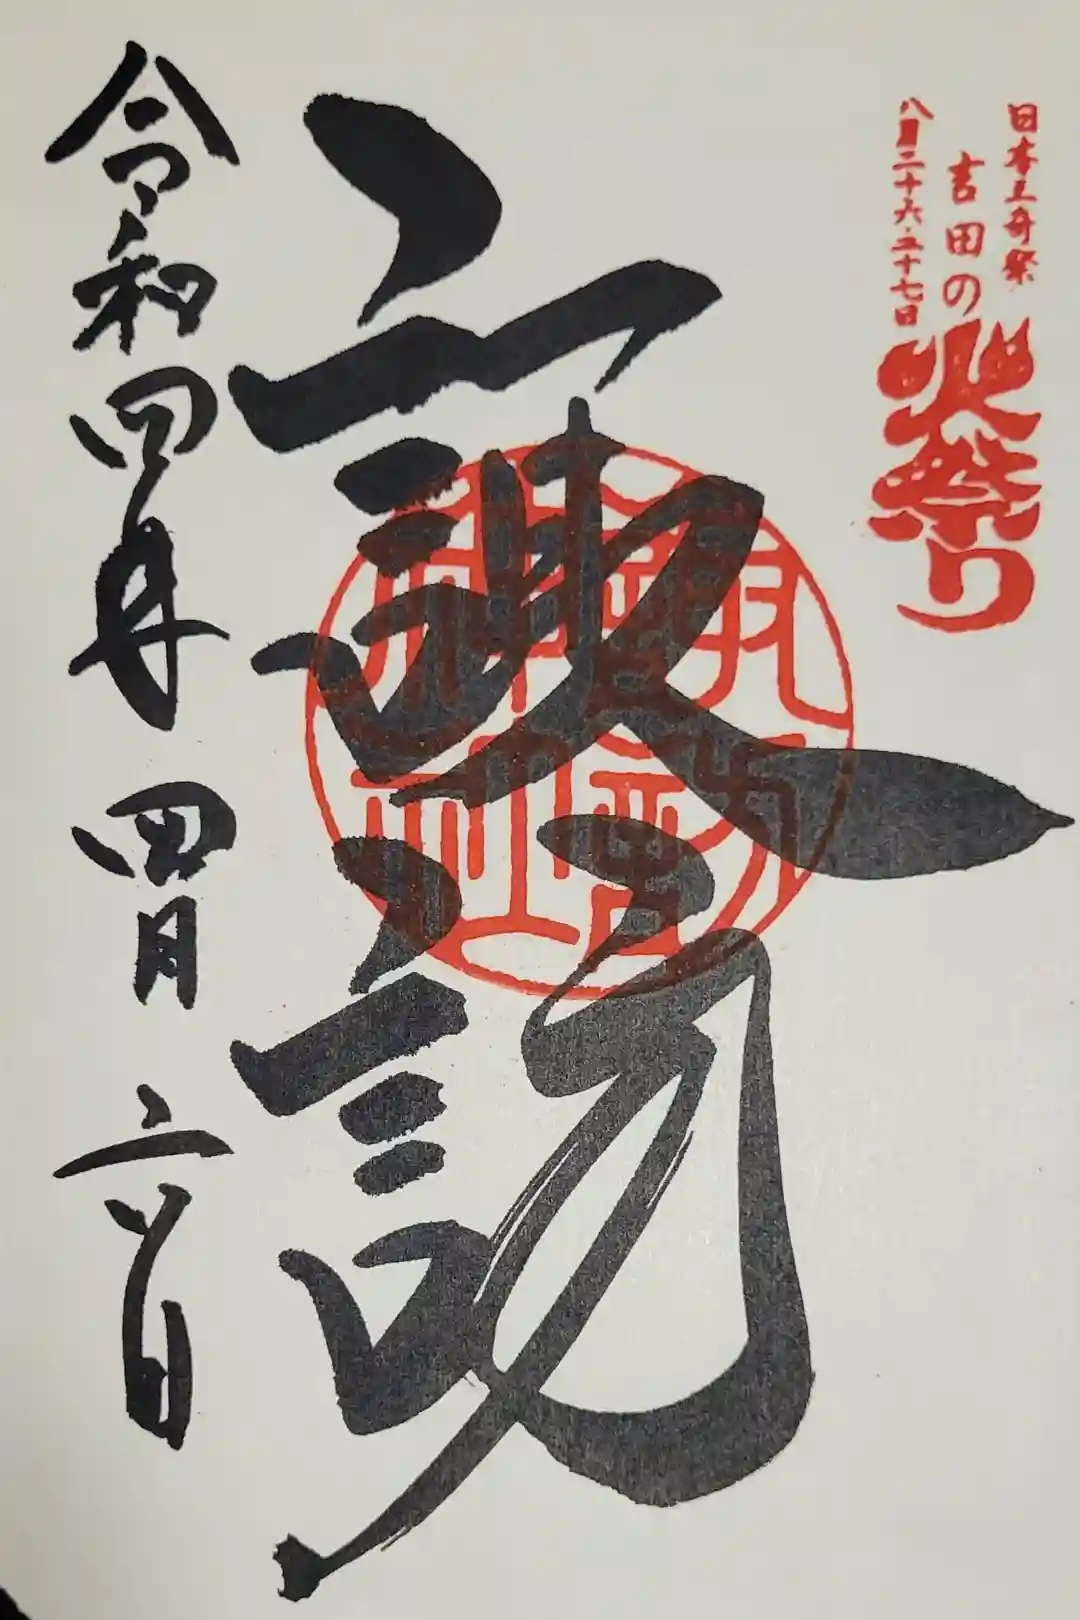 日本三奇祭
吉田の火祭り
八月二十六・二十七日
諏訪
令和四年四月六日